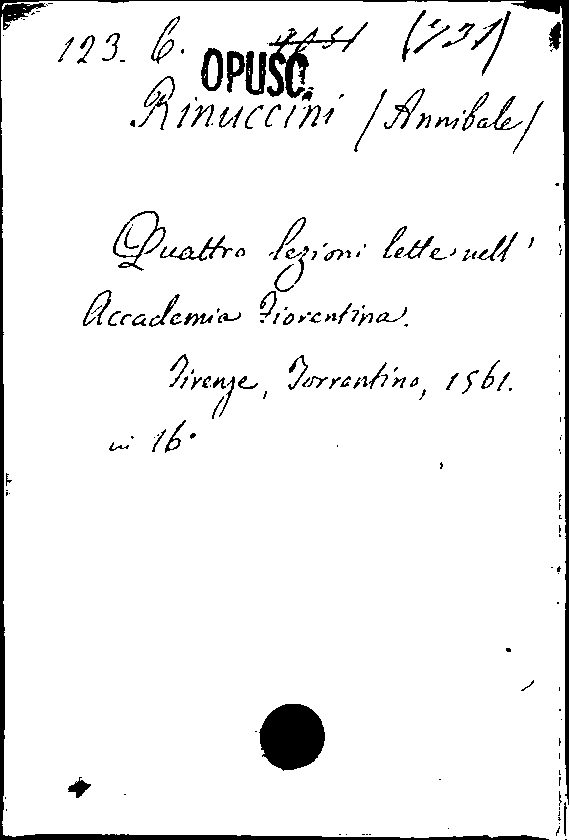 123. C. (731)
OPUSC.
Rinuccini (Annibale)
Quattro lezioni lette nell'
Accademia Fiorentina.
Firenze, Torrentino, 1561.
in 16°